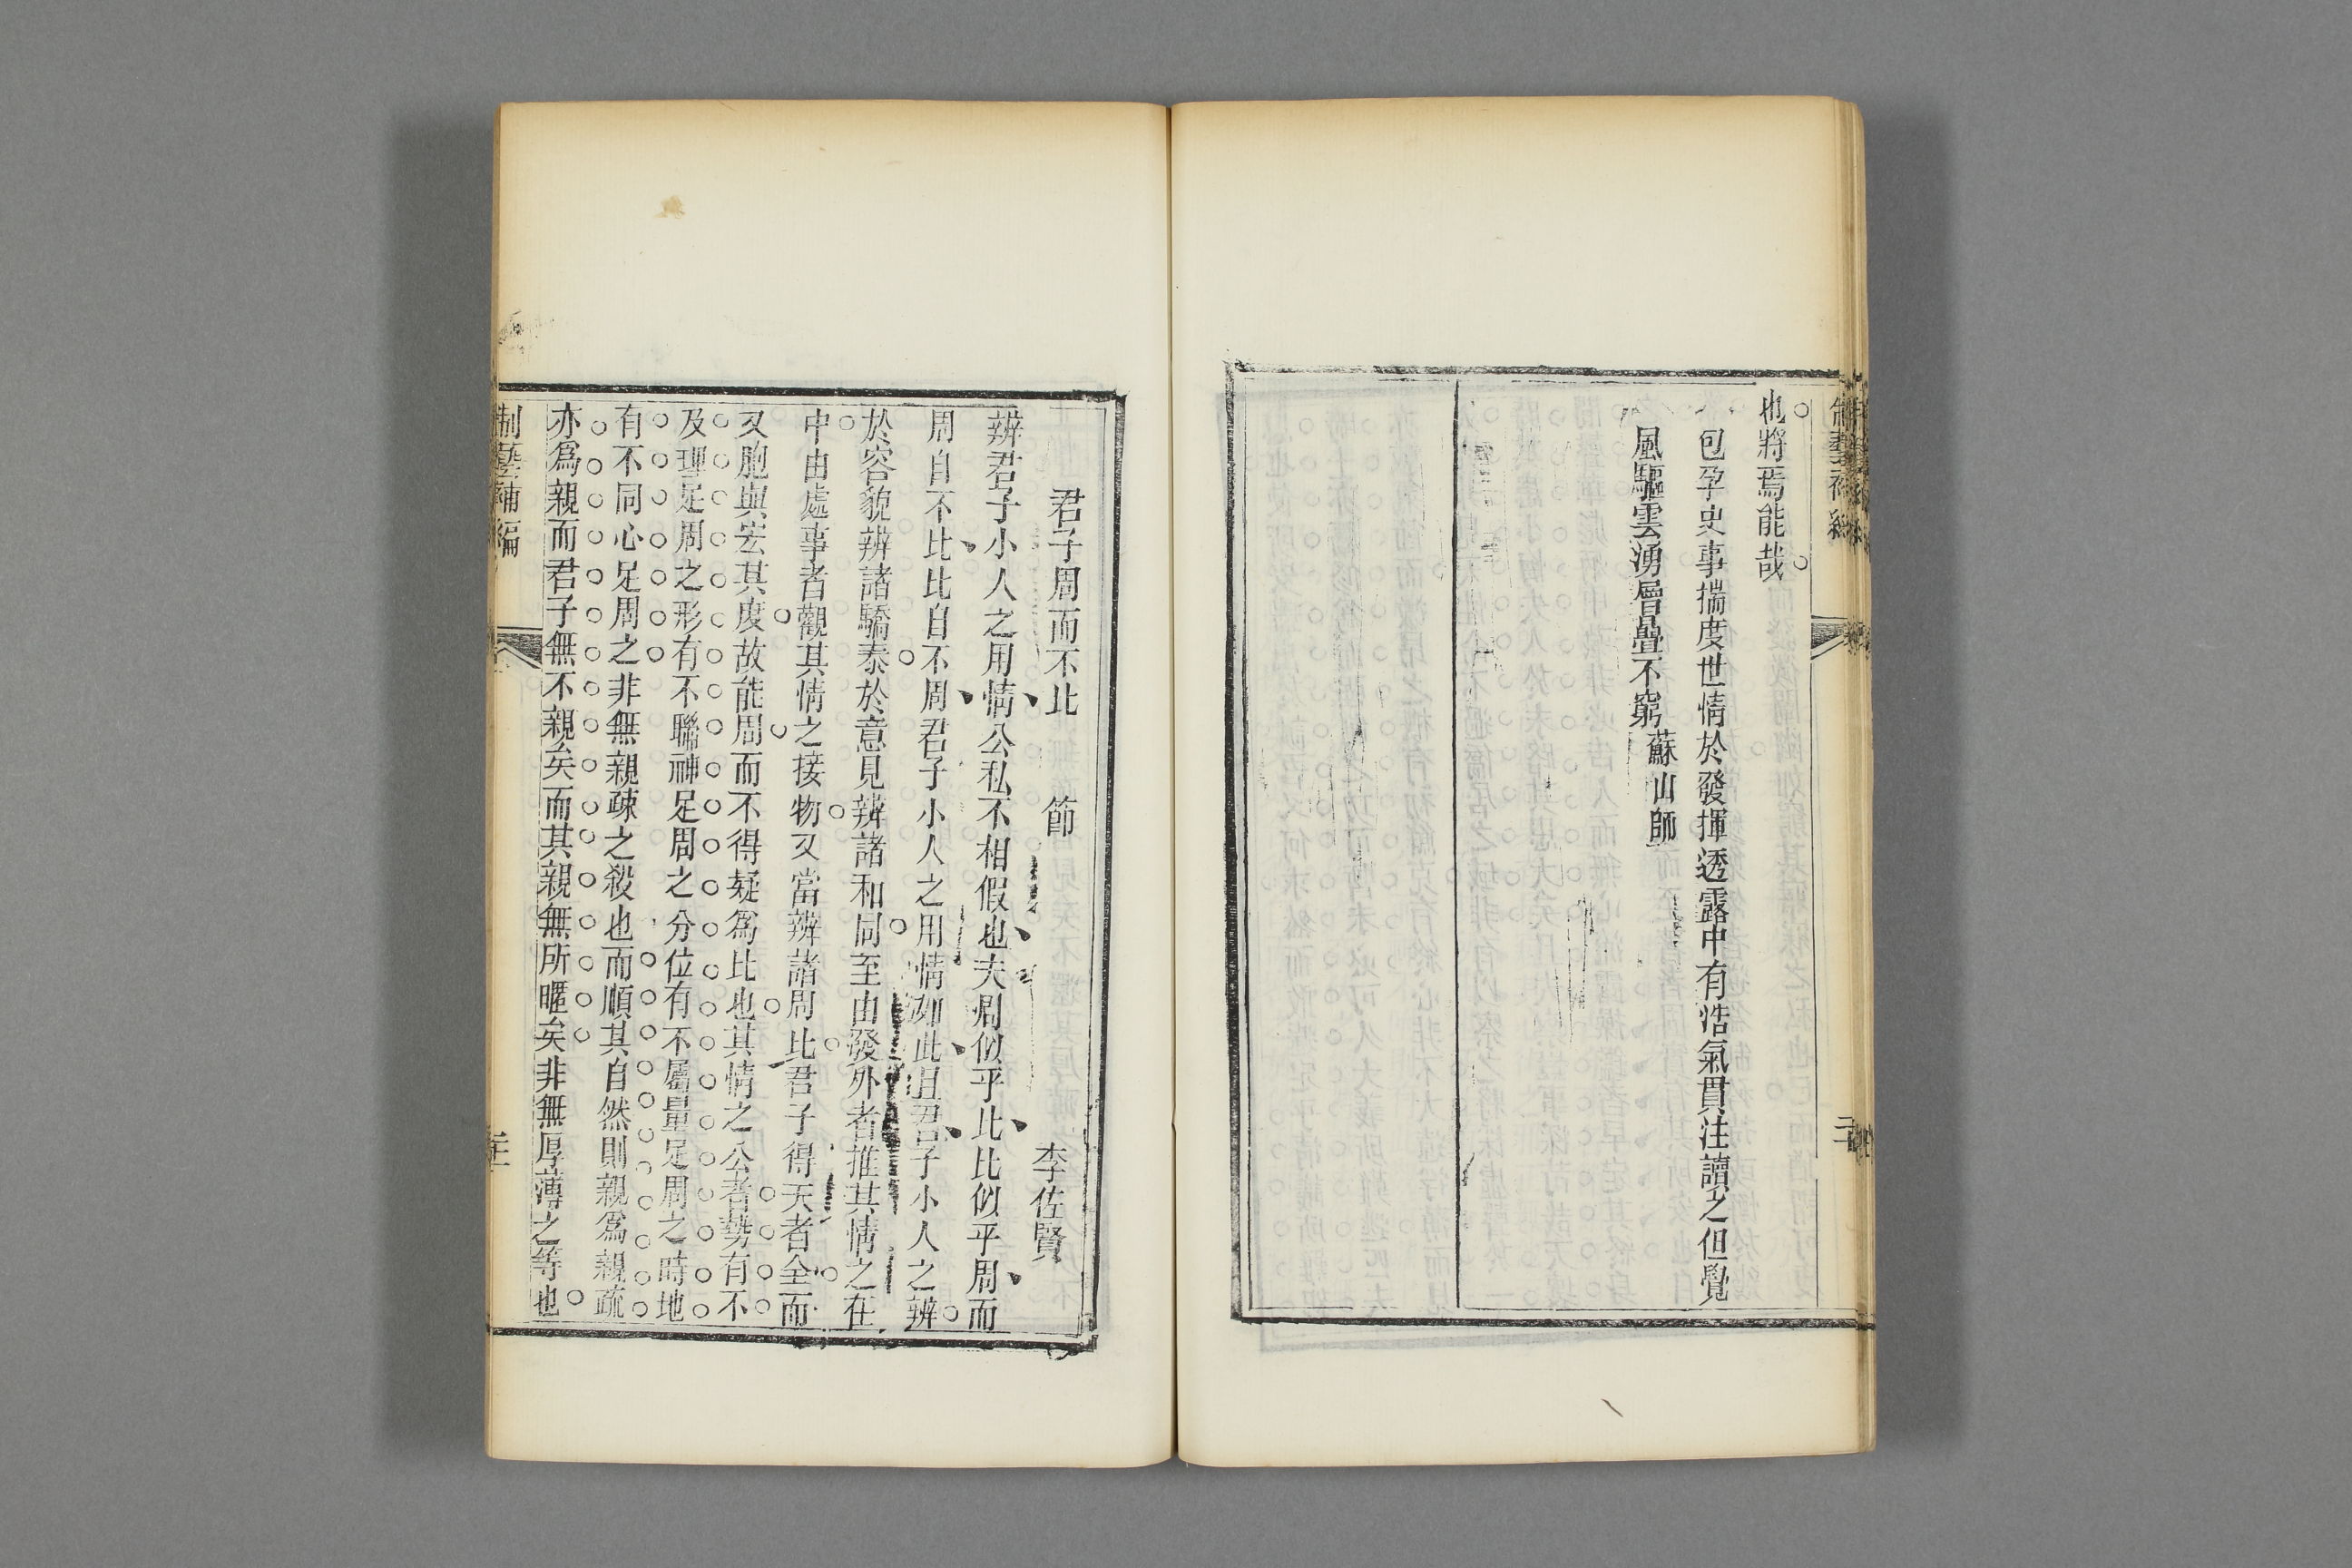 也將焉能哉
包孕史事揣度世情於發揮透露中有浩氣貫注讀之但覺
風驅雲湧層疊不窮 蘇山師
君子周而不比 節 李佐賢
辨君子小人之用情公私不相假也夫周似乎比比似乎周而
周自不比比自不周君子小人之用情如此且君子小人之辨
於容貌辨諸驕泰於意見辨諸和同至由發外者推其情之在
中由處事者觀其情之接物又當辨諸周比君子得天者全而
又胞與宏其度故能周而不得疑爲比也其情之公者勢有不
及理足周之形有不聯神足周之分位有不屬量足周之時地
有不同心足周之非無親疎之殺也而順其自然則親爲親疏
亦爲親而君子無不親矣而其親無所暱矣非無厚薄之等也
制藝補編